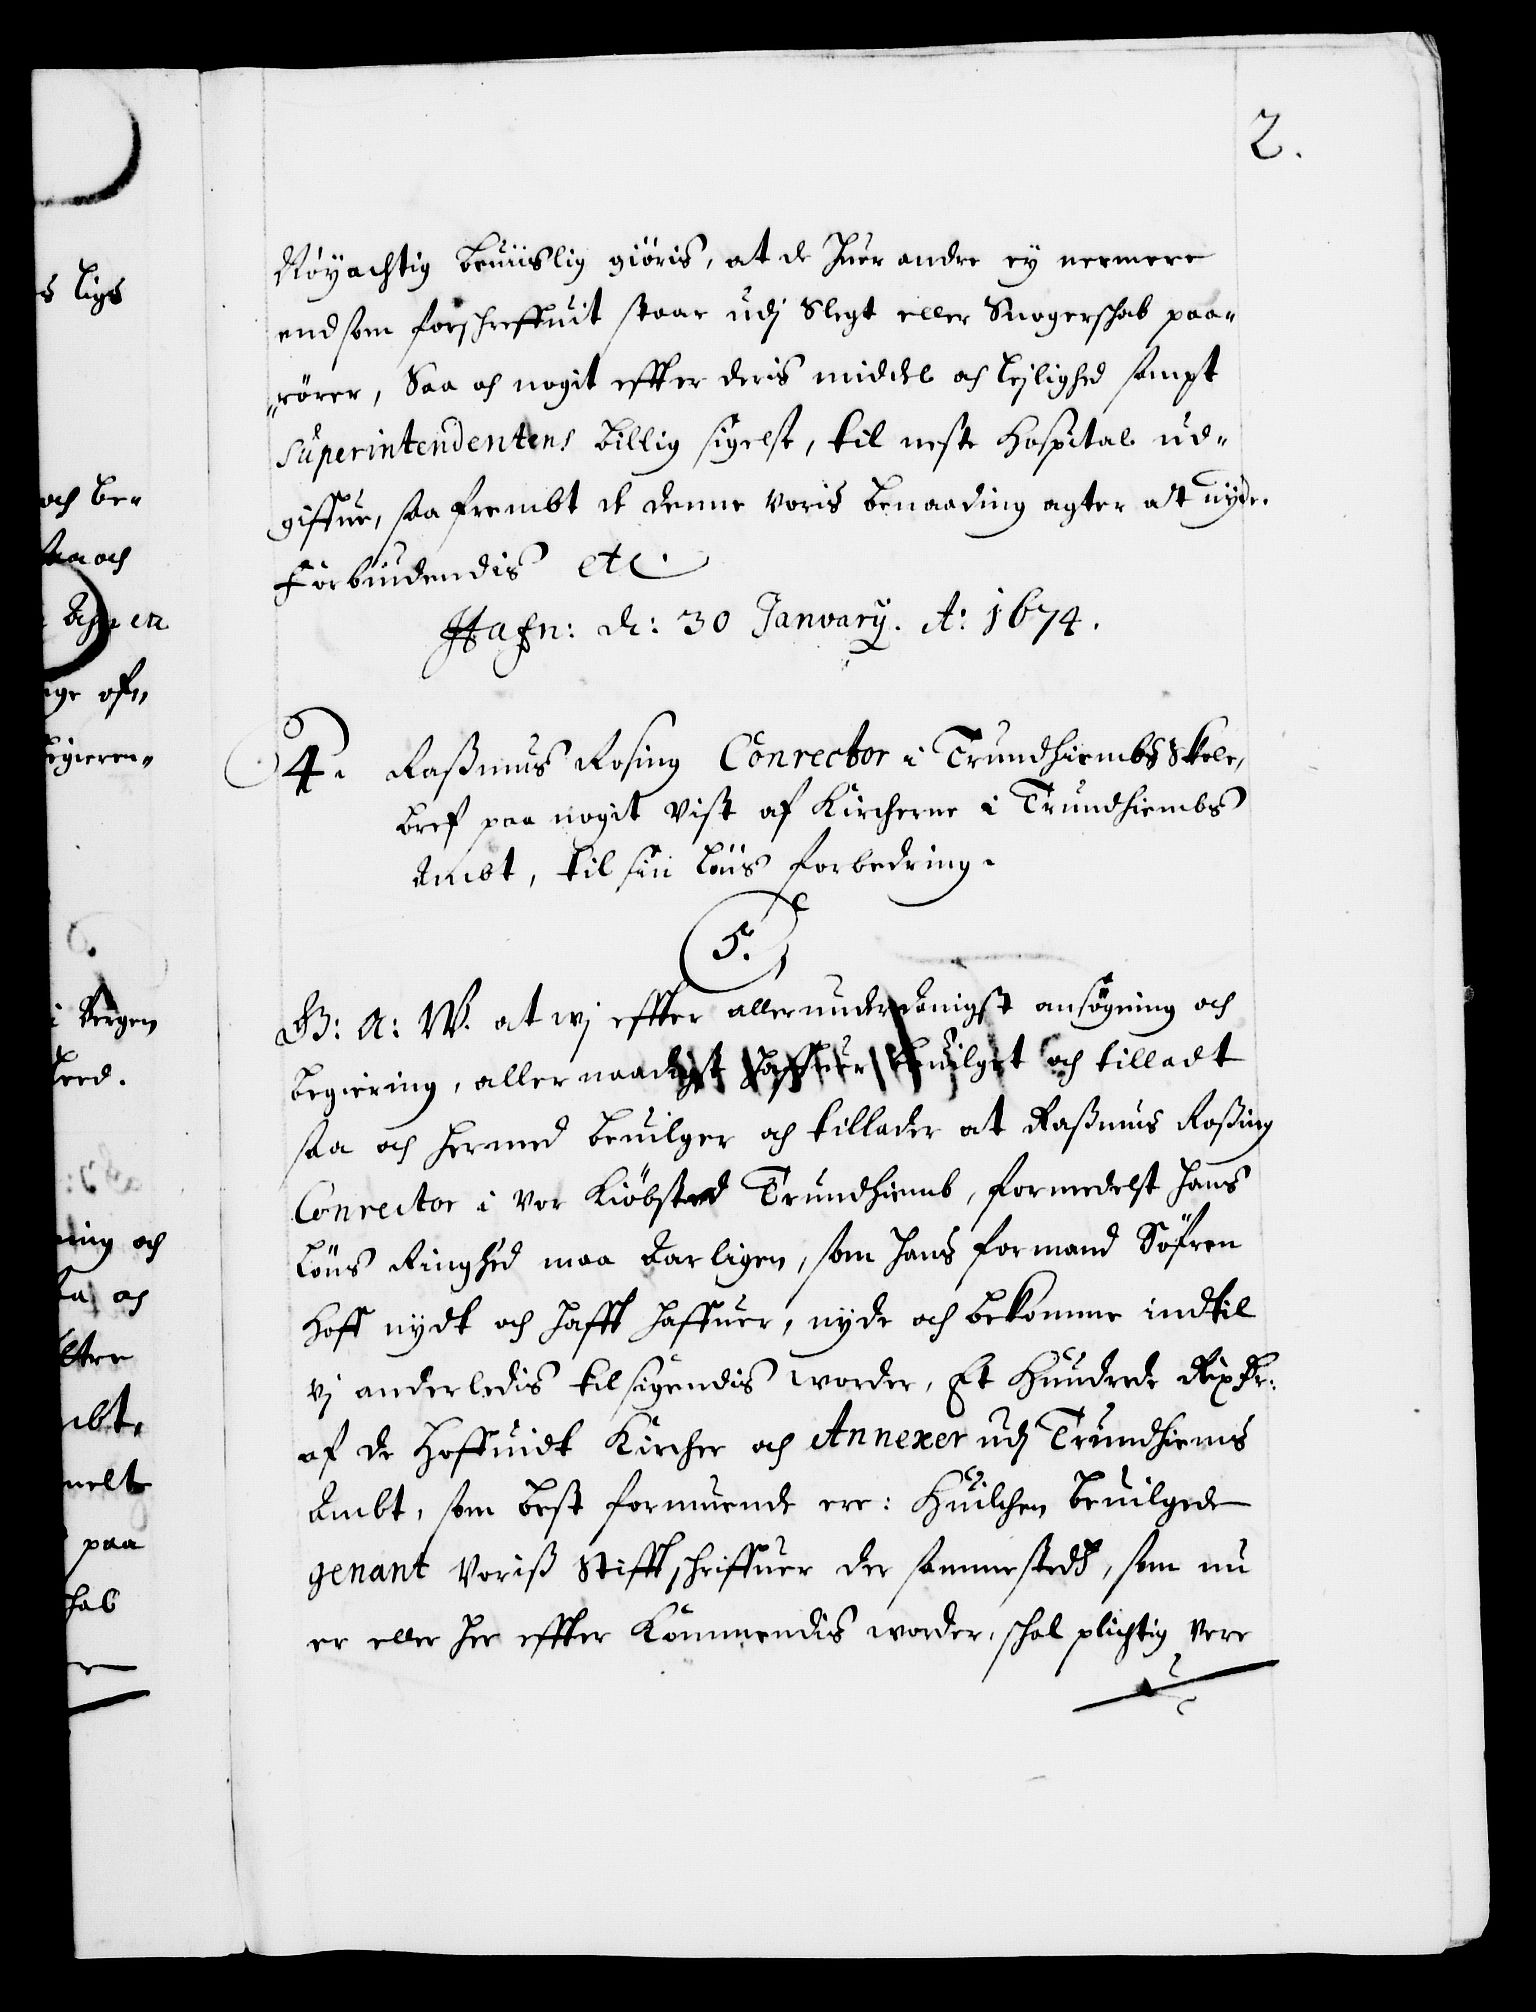 2.
s ligs
och be-
saa och
ige af„
begieren„
i Bergen
ning och
paa
Nøyachtig beuiislig giøris, at de huer andre ey nermere
end som forschreffuit staar udj Slegt eller Suogerschab paa„
„rører, Saa och nogit effter deris middel och lejlighed sampt
Superintendentens billig sigelse, til neste Hospital ud-
giffue, saafrembt de denne voris benaading agter at nyde.
Forbiudendis etc.
Hafn: d: 30 January. Ao: 1674.
4. Raßmus Rosing Conrector i Trundhiembs Skole,
bref paa nogit vist af Kircherne i Trundhiembs
Ambt, til sin løns forbedring.
5.
G: A: W. at wj effter allerunderdanigst ansøgning och
begiering, allernaadigst haffuer beuilget och tilladt
saa och hermed beuilger och tillader at Raßmus Roßing
Conrector i vor Kiøbsted Trundhiemb, formedelst hans
løns Ringhed maa Aarligen, som hans formand Søfren
Hoff nydt och hafft haffuer, nyde och bekomme indtil
vj anderledis tilsigendis worder, Et Hundrede Rixdr:
af de Hoffuidt Kircher och Annexer udj Trundhiems
Ambt, som best formuende ere: Huilchen beuilgede
genant voriß Stifftschriffuer der sammesteds, som nu
er eller her effter Kommendis worder, schal plichtig vere